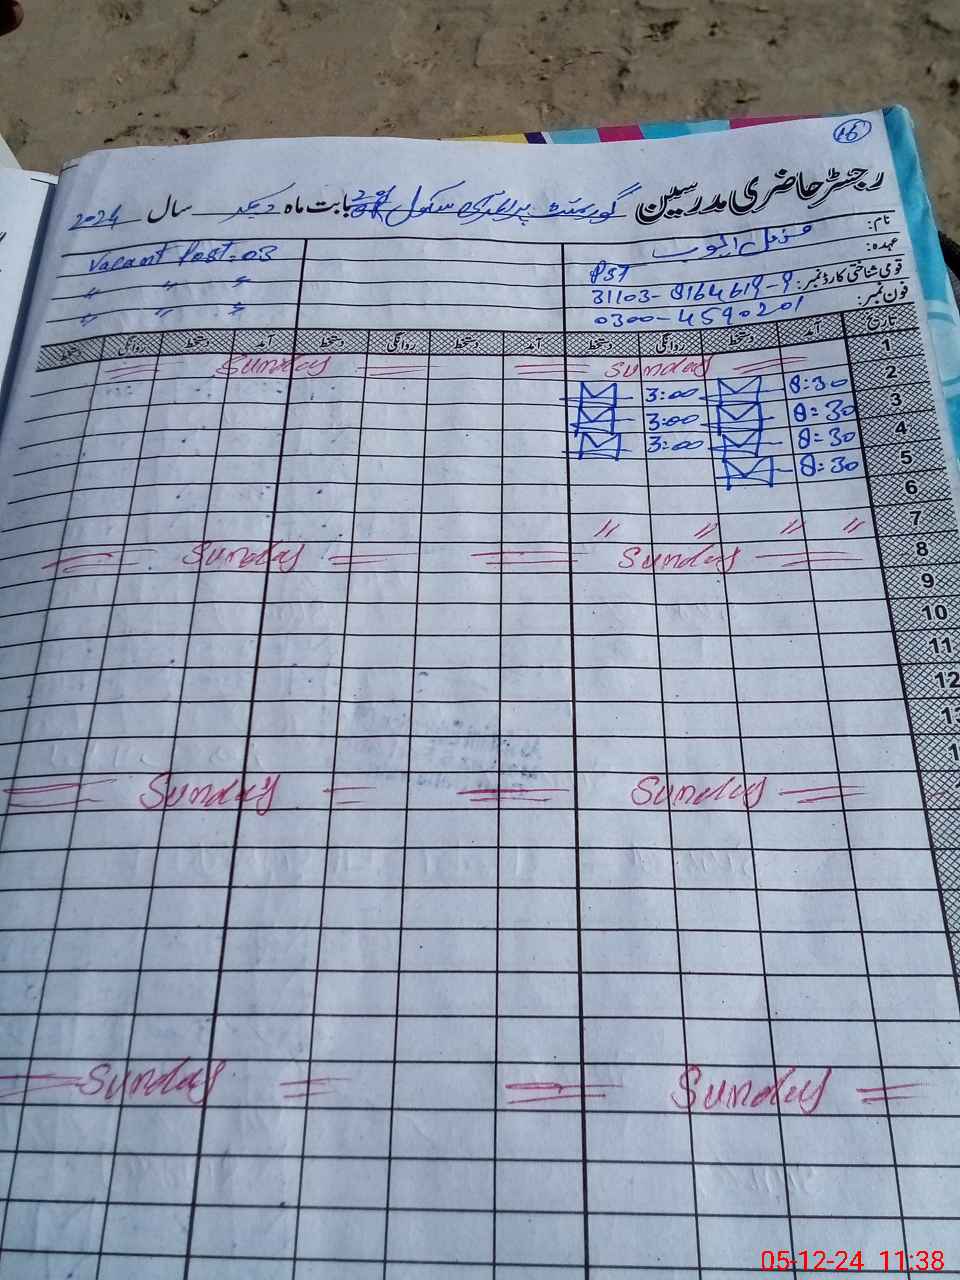 16
رجسٹر حاضری مدرسین گورنمنٹ پرائمری سکول بابت ماہ دسمبر سال 2024
نام: مزمل ایوب
Vacant Post-03
عہدہ: PST
" " "
قومی شناختی کارڈ نمبر: 31103-8164619-9
" " "
فون نمبر: 0300-4590201
تاریخ آمد دستخط روانگی دستخط آمد دستخط روانگی دستخط آمد دستخط روانگی دستخط
1 Sunday Sunday
2 8:30 3:00
3 8:30 3:00
4 8:30 3:00
5 8:30
6
7 " " " "
8 Sunday Sunday
9
10
11
12
Sunday Sunday
Sunday Sunday
05-12-24 11:38